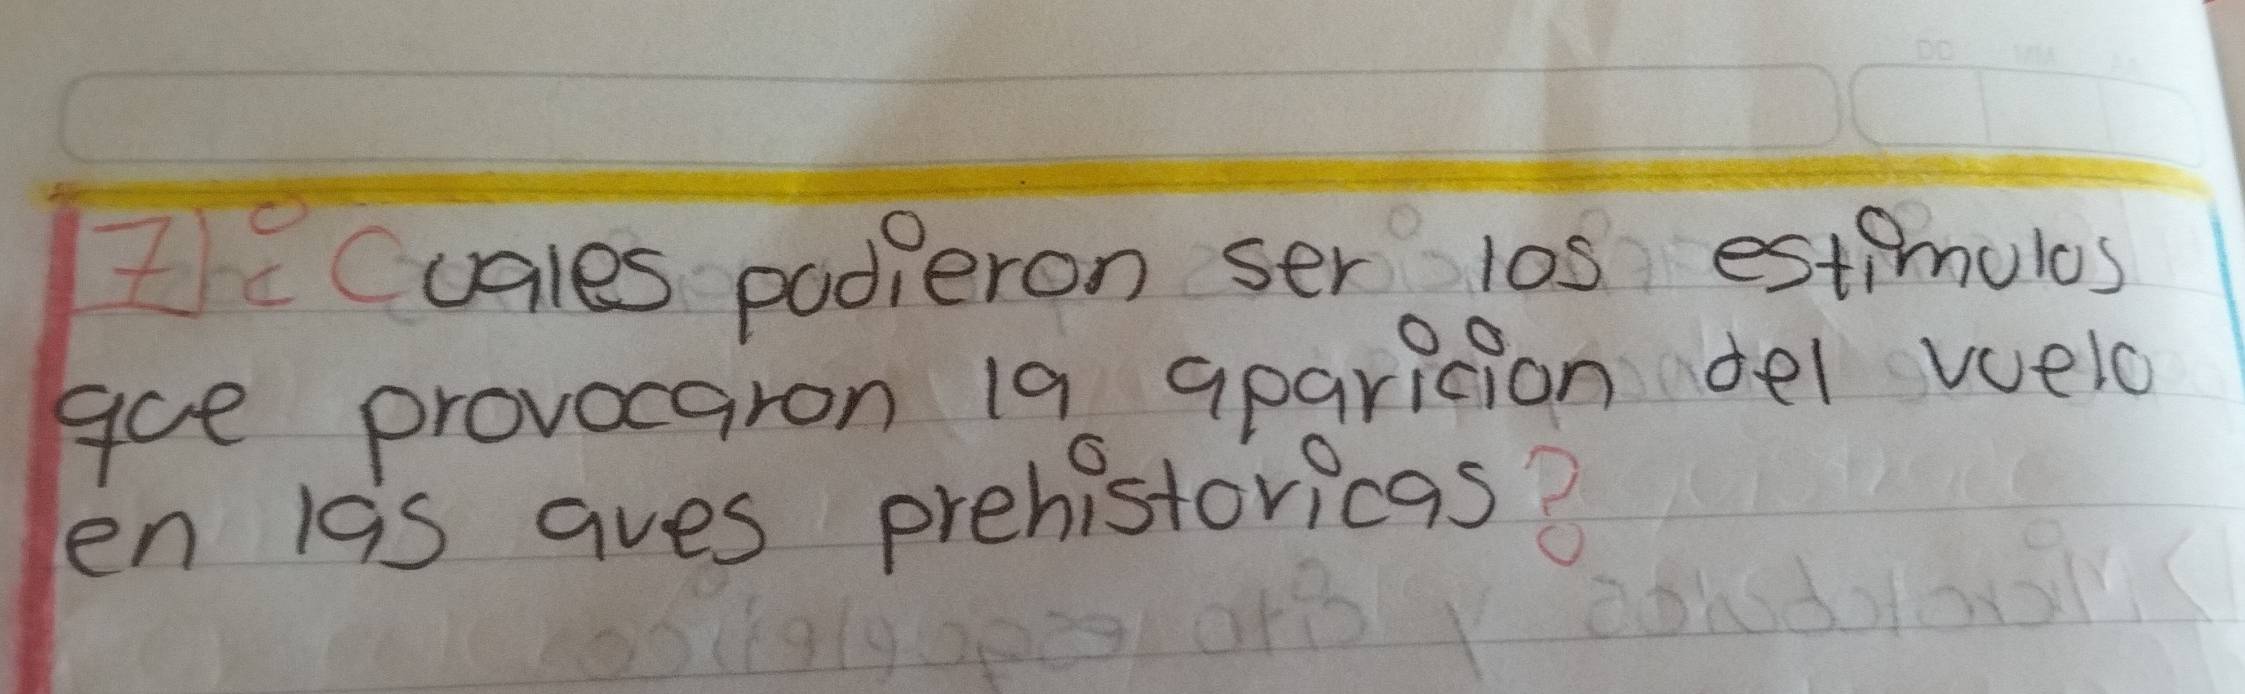 DD MM AA
7) ¿Cuales pudieron ser los estimulos
que provocaron la aparicion del vuelo
en las aves prehistoricas?